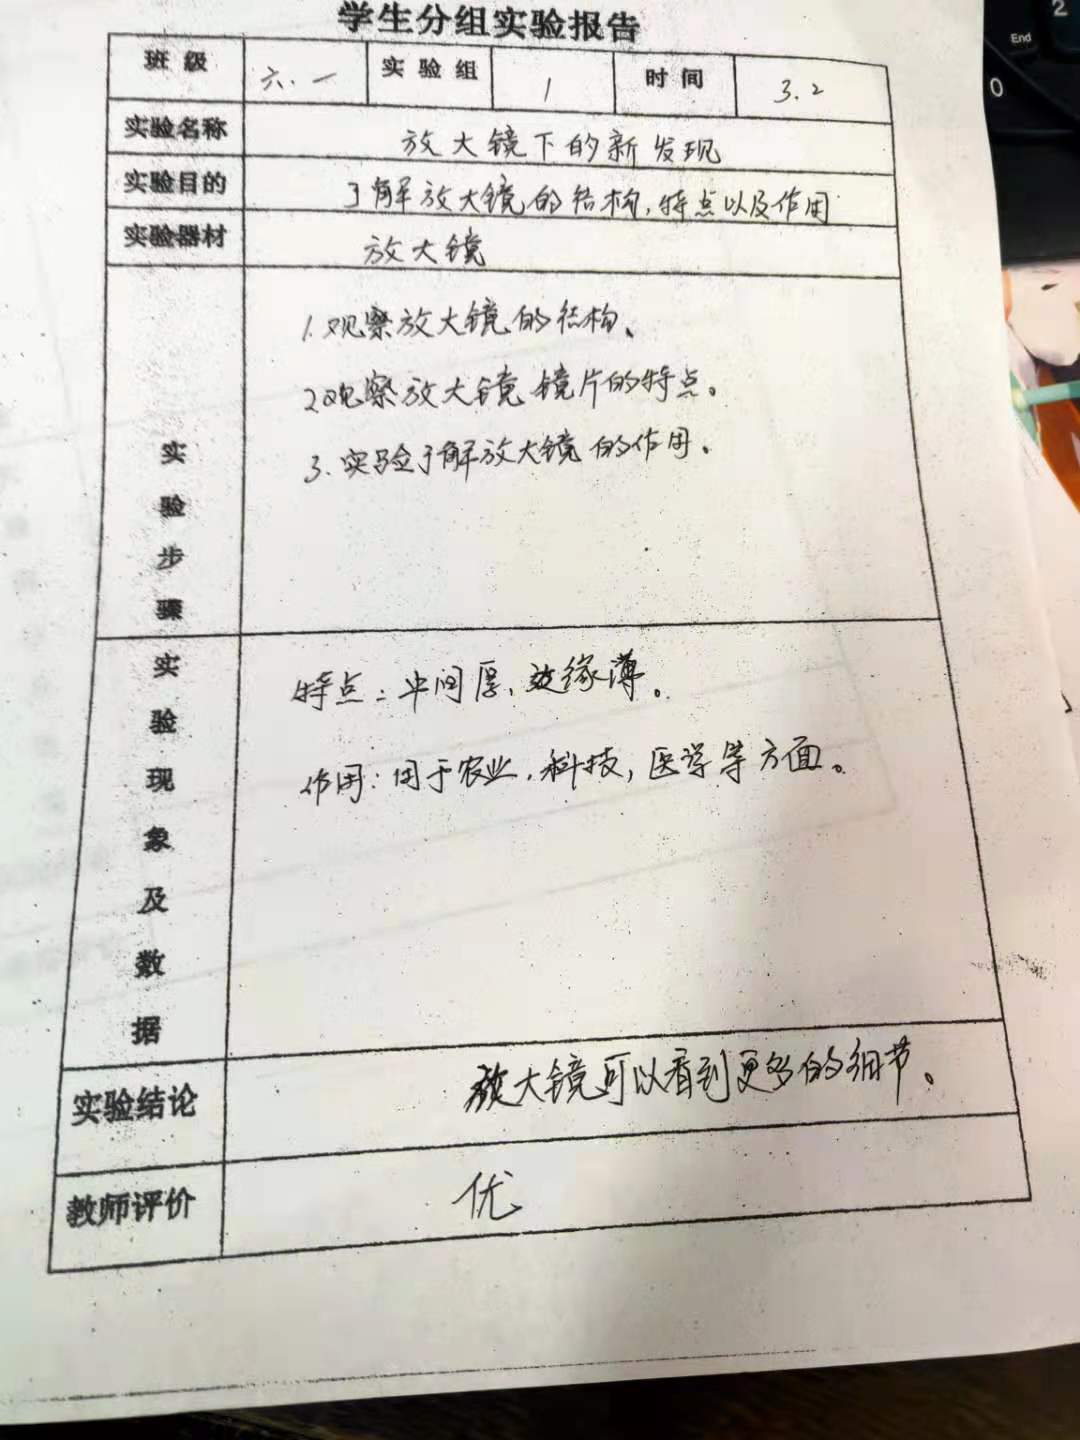 学生分组实验报告
班级 六.一 实验组 1 时间 3.2
实验名称 放大镜下的新发现
实验目的 了解放大镜的结构,特点以及作用
实验器材 放大镜
实验步骤
1.观察放大镜的结构、
2观察放大镜镜片的特点。
3.实验了解放大镜的作用。
实验现象及数据
特点:中间厚,边缘薄。
作用:用于农业,科技,医学等方面。
实验结论 放大镜可以看到更多的细节。
教师评价 优
End
2
0